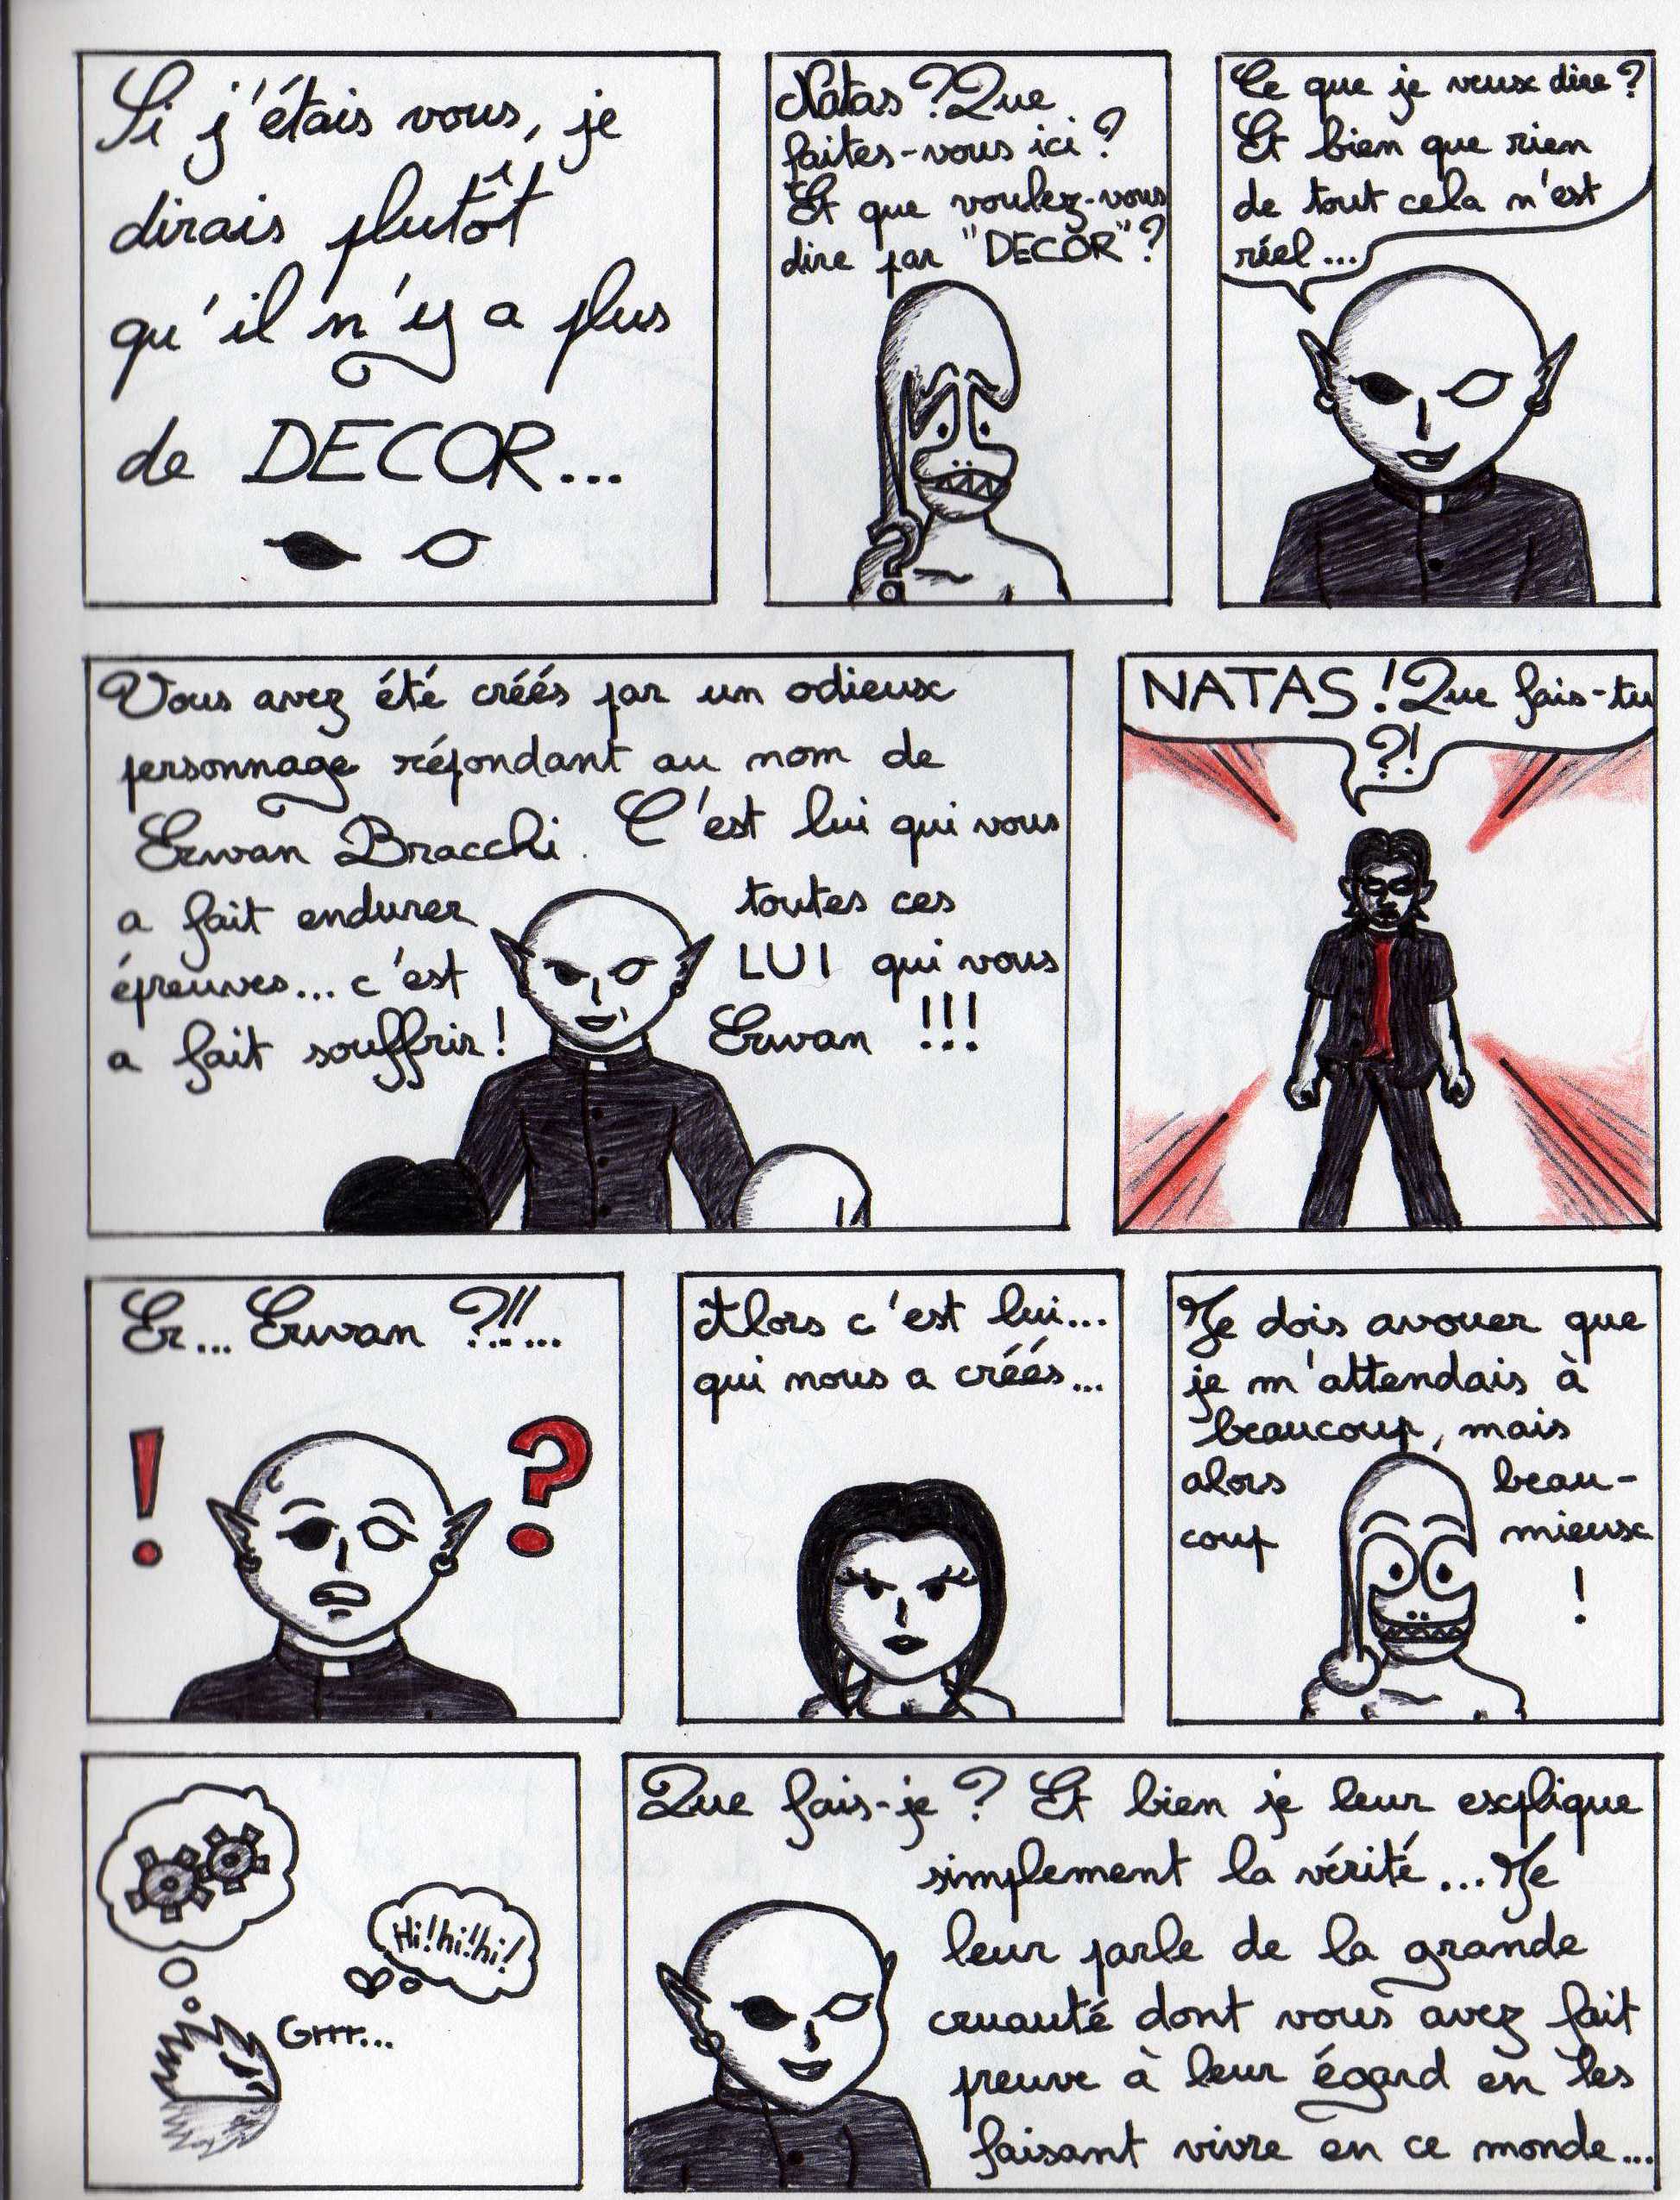 Si j'étais vous, je
dirais plutôt
qu'il n'y a plus
de DECOR...
Natas ? Que
faites-vous ici ?
Et que voulez-vous
dire par "DECOR" ?
Ce que je veux dire ?
Et bien que rien
de tout cela n'est
réel...
Vous avez été créés par un odieux
personnage répondant au nom de
Erwan Bracchi. C'est lui qui vous
a fait endurer toutes ces
épreuves... c'est LUI qui vous
a fait souffrir! Erwan !!!
NATAS! Que fais-tu
?!
Er... Erwan ?!!...
! ?
Alors c'est lui...
qui nous a créés...
Je dois avouer que
je m'attendais à
beaucoup, mais
alors beau-
coup mieux
!
Hi!hi!hi!
Grrr...
Que fais-je ? Et bien je leur explique
simplement la vérité... Je
leur parle de la grande
cruauté dont vous avez fait
preuve à leur égard en les
faisant vivre en ce monde...